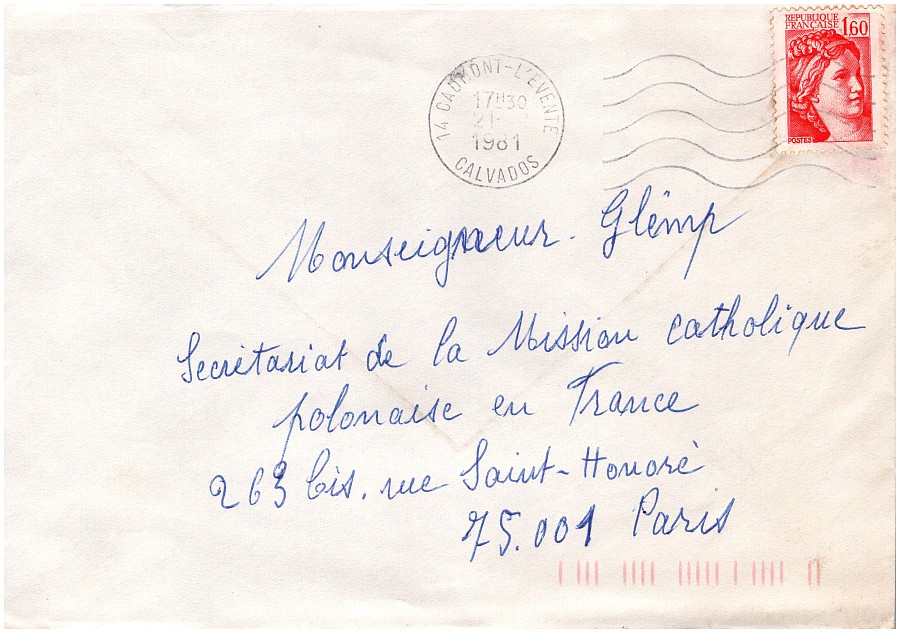 RÉPUBLIQUE
FRANÇAISE 1,60
POSTES
14 CAUMONT-L'EVENTE
17H30
21-
1981
CALVADOS
Monseigneur. Glemp
Secrétariat de la Mission catholique
polonaise en France
263 bis. rue Saint-Honoré
75.001 Paris